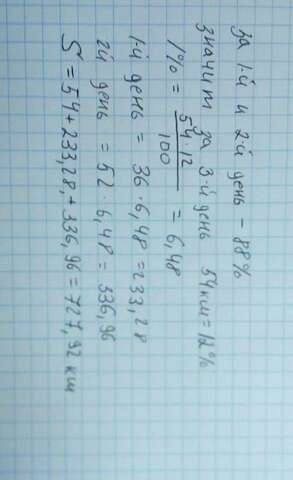 за 1-й и 2-й день - 88%
значит за 3-й день 54км = 12%
1% = 54·12 / 100 = 6,48
1-й день = 36 · 6,48 = 233,28
2й день = 52 · 6,48 = 336,96
S = 54 + 233,28 + 336,96 = 727,92 км